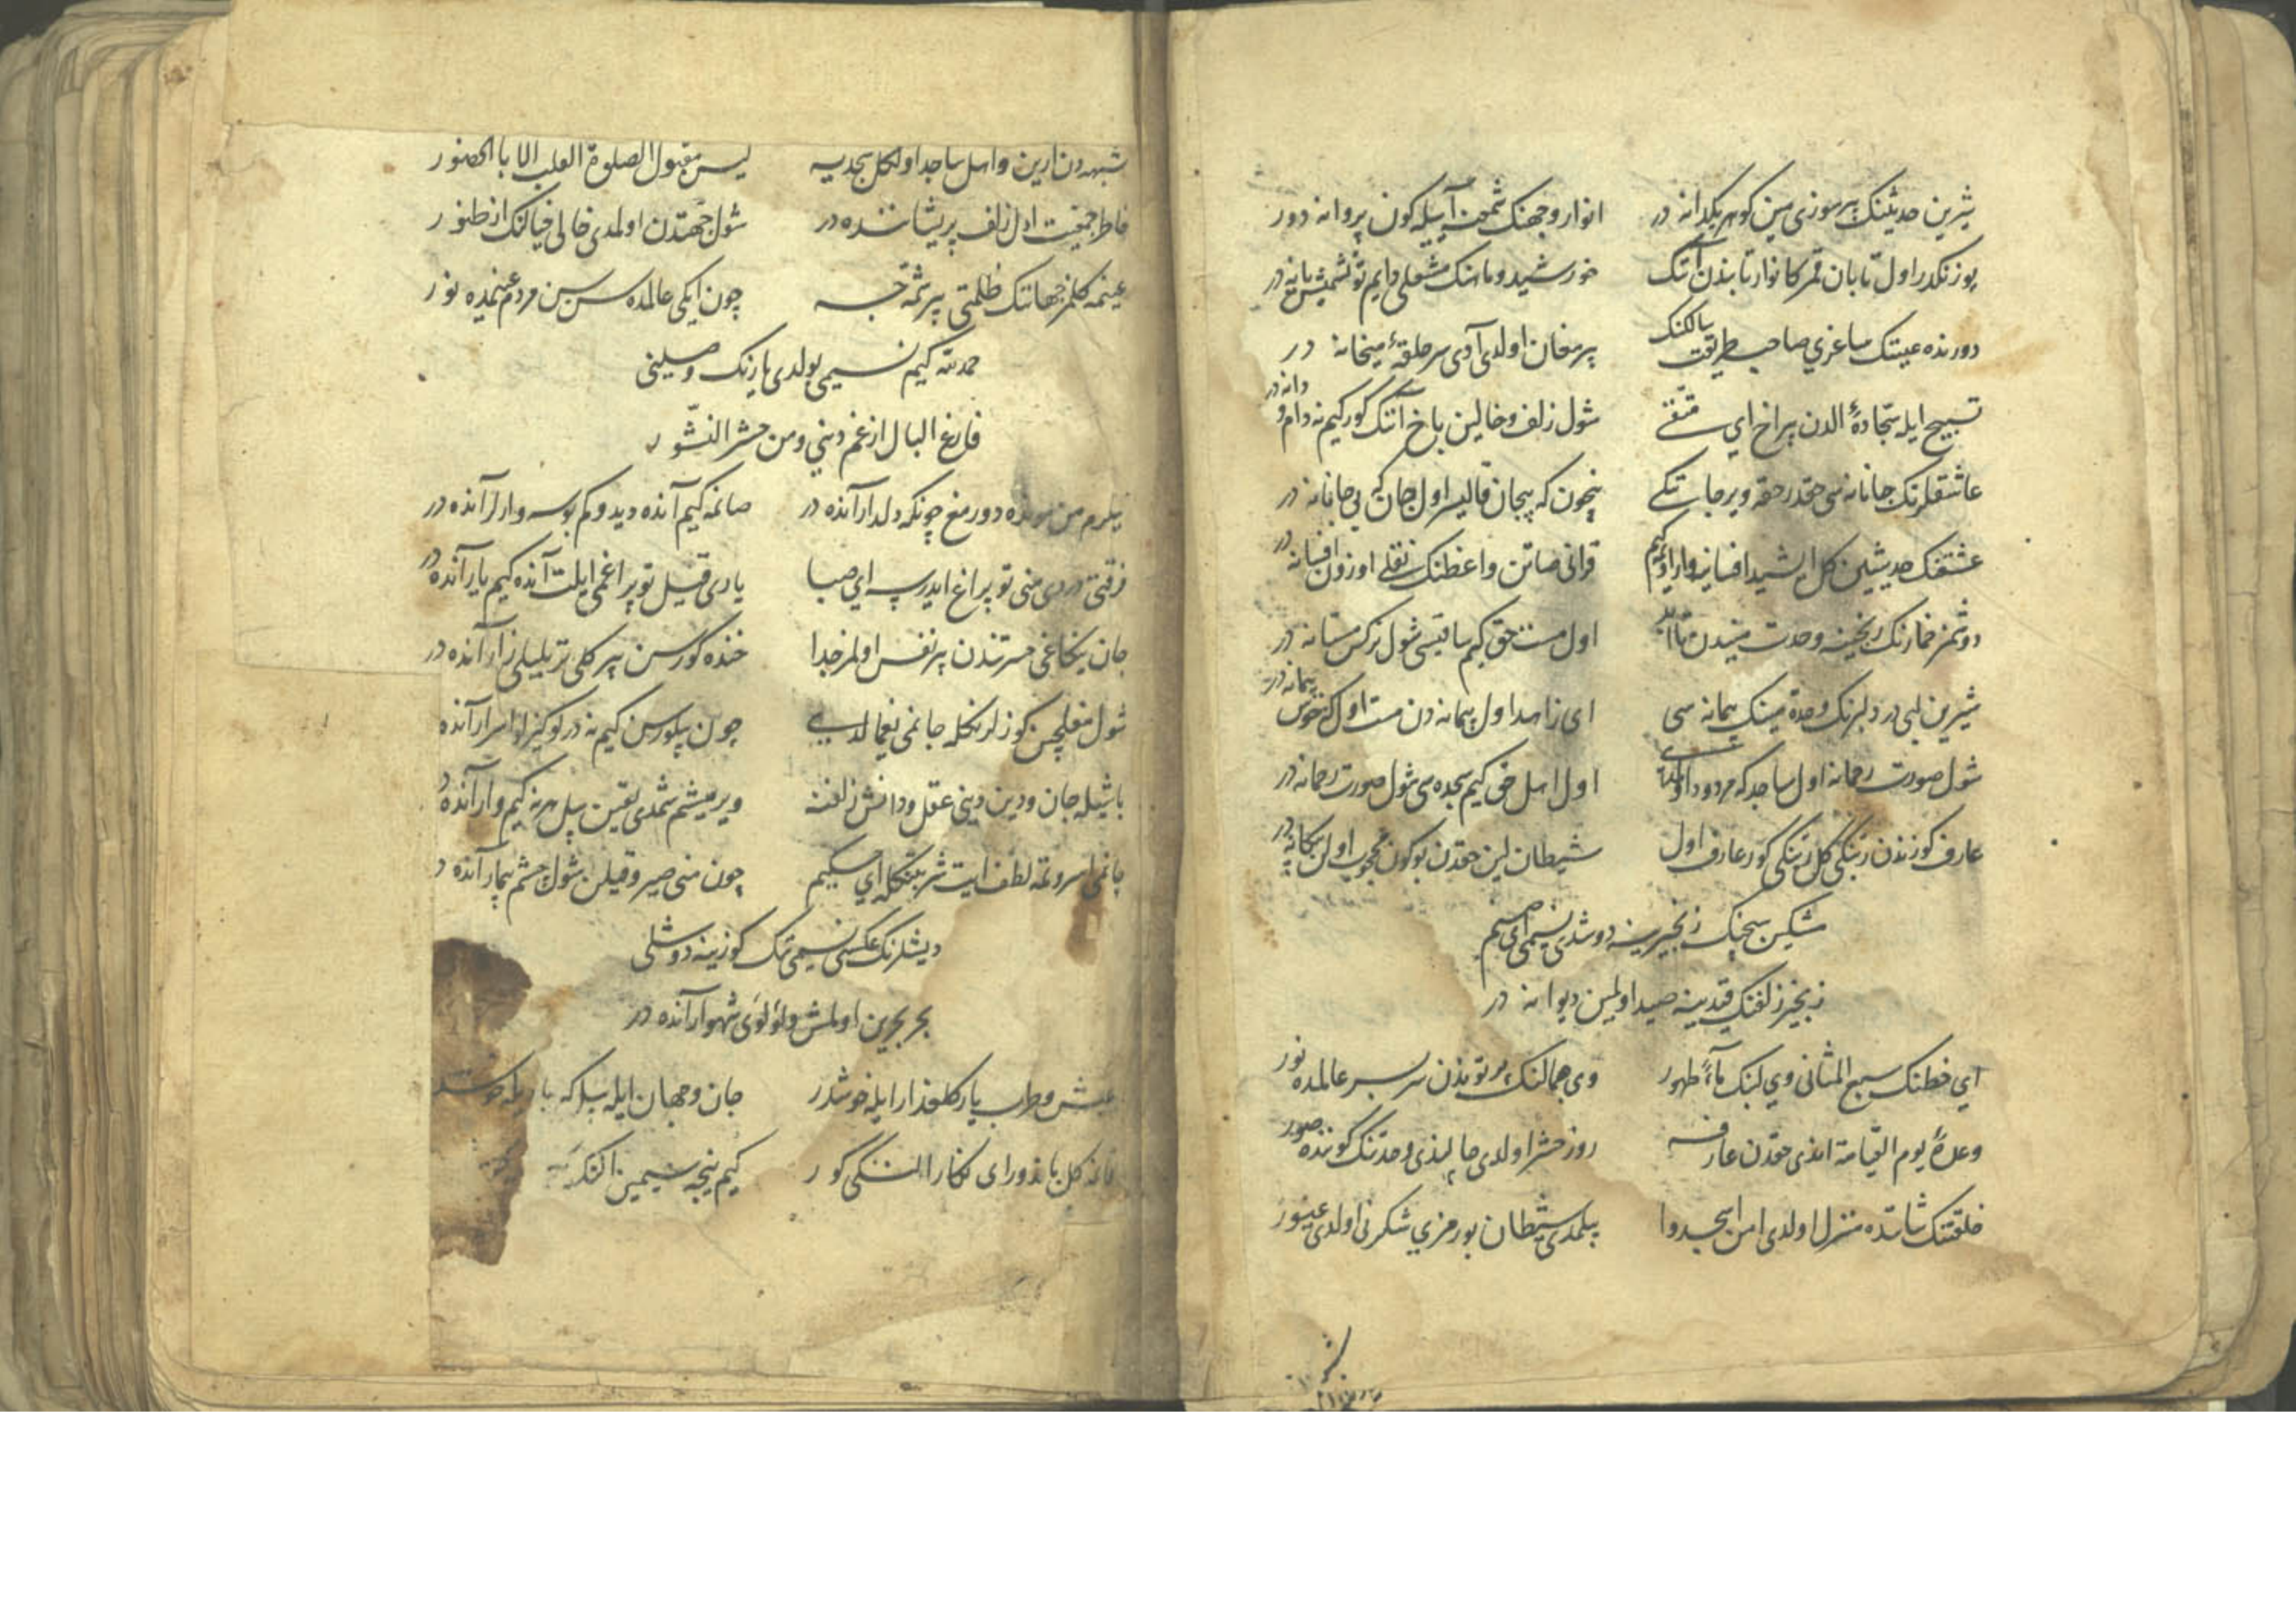 شیرین حدیثنک هر سوزی مین کوهر یکدانه در انوار وجهنک شمعنه آییله کون پروانه دور
یوزنکدر اول تابان قمر کانوار تابندن آنک خورشید و ماهنک مشعلی دایم
دورنده عینتک ساغری صاحب طریقت سالکنک پیر مغان اولدی آدی سر حلقهٔ میخانه در
تسبیح ایله سجادهٔ الدن بیراخ ای متقے شول زلف و خالین باخ آنک کور کیم نه دام و دانه در
عاشقلرنک جانانه سی حقدر حقه ویر جانکے نیچون که بیجان قالیسر اول جان که بی جانانه در
عشقنک حدیثین کل ایشید افسانیه وار اول کیم قرانی صاتن واعظنک نقلے اوزون افسانه در
دوشمز خمارنک رنجینه وحدت میندن تا ابد اول مست حق کیم ساقیسی شول نرکس مستانه در
شیرین لبی در دلبرنک وحدة مینک پیمانه سی ای زاهد اول پیمانه دن مست اول که خوش پیمانه در
شول صورت رحمانه اول ساجد که مردود اولمیه سے اول اهل حق کیم سجده سی شول صورت رحمانه در
عارف کوزندن رنیکی کل رنیکی کور عارف اول شیطان لین حقدن بوکون محجوب اولن بیکانه در
مشکین سچنک زنجیرینه دوشدی نسیمی ای صنم
زنجیر زلفنک قیدینه صید اولمین دیوانه در
ای خطنک سبع المثانی وی لبنک ماءً طهور وی جمالنک پرتوندن سر بسر عالمده نور
وعدهٔ یوم القیامة ایندی حقدن عارفه روز حشر اولدی چالیندی وحدتنک کوننده صور
خلقتنک شانده منزل اولدی امر اسجدوا بیلمدی شیطان بو رمزی شکرنی اولدی غیور
شبهه دن ارین و اهل ساجد اول کل سجدیه لیس مقبول الصلوة القلب الا بالحضور
خاطر جمعیت اول زلف پریشاننده در شول جهتدن اولمدی خالی خیالنک از ظهور
عینمه کلمز جهاننک ظلمتی بر شمه جه چون ایکی عالمده سن سن مردم عینمده نور
حمد لله کیم نسیمی بولدی یارنک وصلینی
فارغ البال از غم دینی و من حشر النشور
بیلرم من مونده دورمغ چونکه دلدار آنده در صانمه کیم آنده دیدوکم بوسه وارلر آنده در
فرقتی دردی منی توپراغ ایدرسه ای صبا یاری قیل توپراغمی ایلت آنده کیم یار آنده در
جان یکاغی حسرتندن بر نفس اولمز جدا خنده کورسن بیر کلی تر بلبلی زار آنده در
شول مغلچین کوزلرنکله جانمی یغمالدے چون بیلورسن کیم نه درلو کیزلو اسرار آنده
باشیله جان و دین دینی عقل و دانش زلفنه ویرمیشم شمدی یقین بیل هر نه کیم وار آنده در
لطف ایت شربتنکله ای حکیم چون منی صیرو قیلن شول چشم بیمار آنده در
دیشلرنک عکسی نسیمی نک کوزینه دوشلی
بحر بحرین اولمش و لؤلؤی شهوار آنده در
عیش و طرب یار کلعذار ایله خوشدر جان و جهان ایله بیل که یار ایله خوشدر
کل ای نکارا کور کیم نیجه سیمین